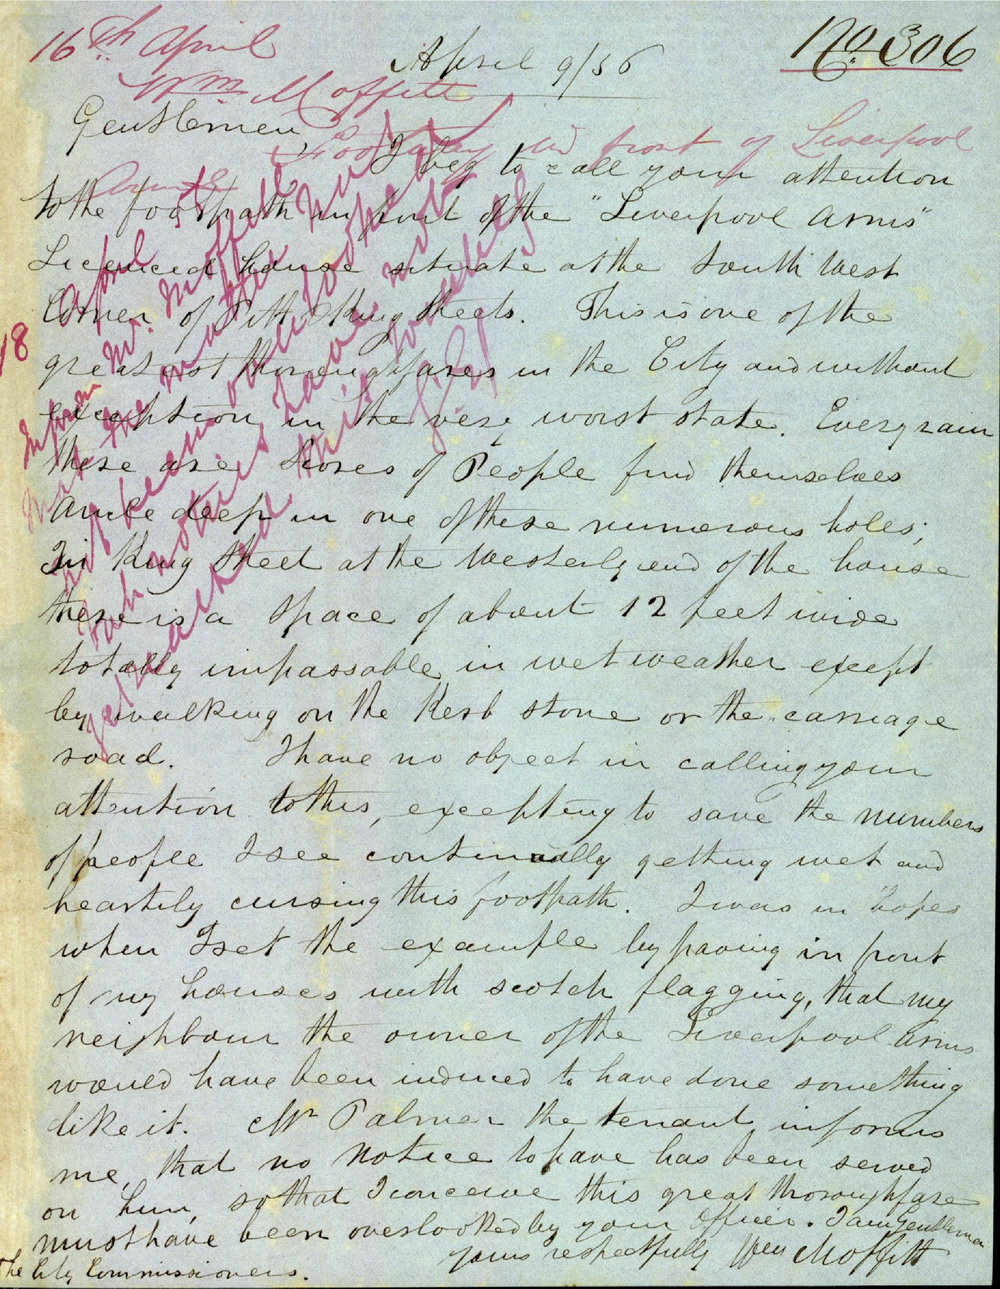 16th April
No. 306
April 9/56
Wm. Moffitt
Gentlemen
Footway in front of Liverpool
Arms
I beg to call your attention
to the footpath in front of the "Liverpool Arms"
Licenced house situate at the South West
Corner of Pitt & King Streets. This is one of the
greatest thoroughfares in the City and without
exception in the very worst state. Every rain
there are, Scores of People find themselves
ancle deep in one of these numerous holes;
In King Street at the Westerly end of the house
there is a space of about 12 feet wide
totally impassable in wet weather except
by walking on the Kerb stone or the carriage
road. I have no object in calling your
attention to this, excepting to save the numbers
of people I see continually getting wet and
heartily cursing this footpath. I was in hopes
when I set the example by paving in front
of my houses with scotch flagging, that my
neighbour the owner of the Liverpool Arms
would have been induced to have done something
like it. Mr Palmer the tenant informs
me, that no notice to pave has been served
on him, so that I conceive this great thoroughfare
must have been overlooked by your Officer. I am Gentlemen
yours respectfully Wm Moffitt
The City Commissioners.
18
April
Inform Mr. Moffitt
that the matter has
not been overlooked
such notices have not
yet reached this locality